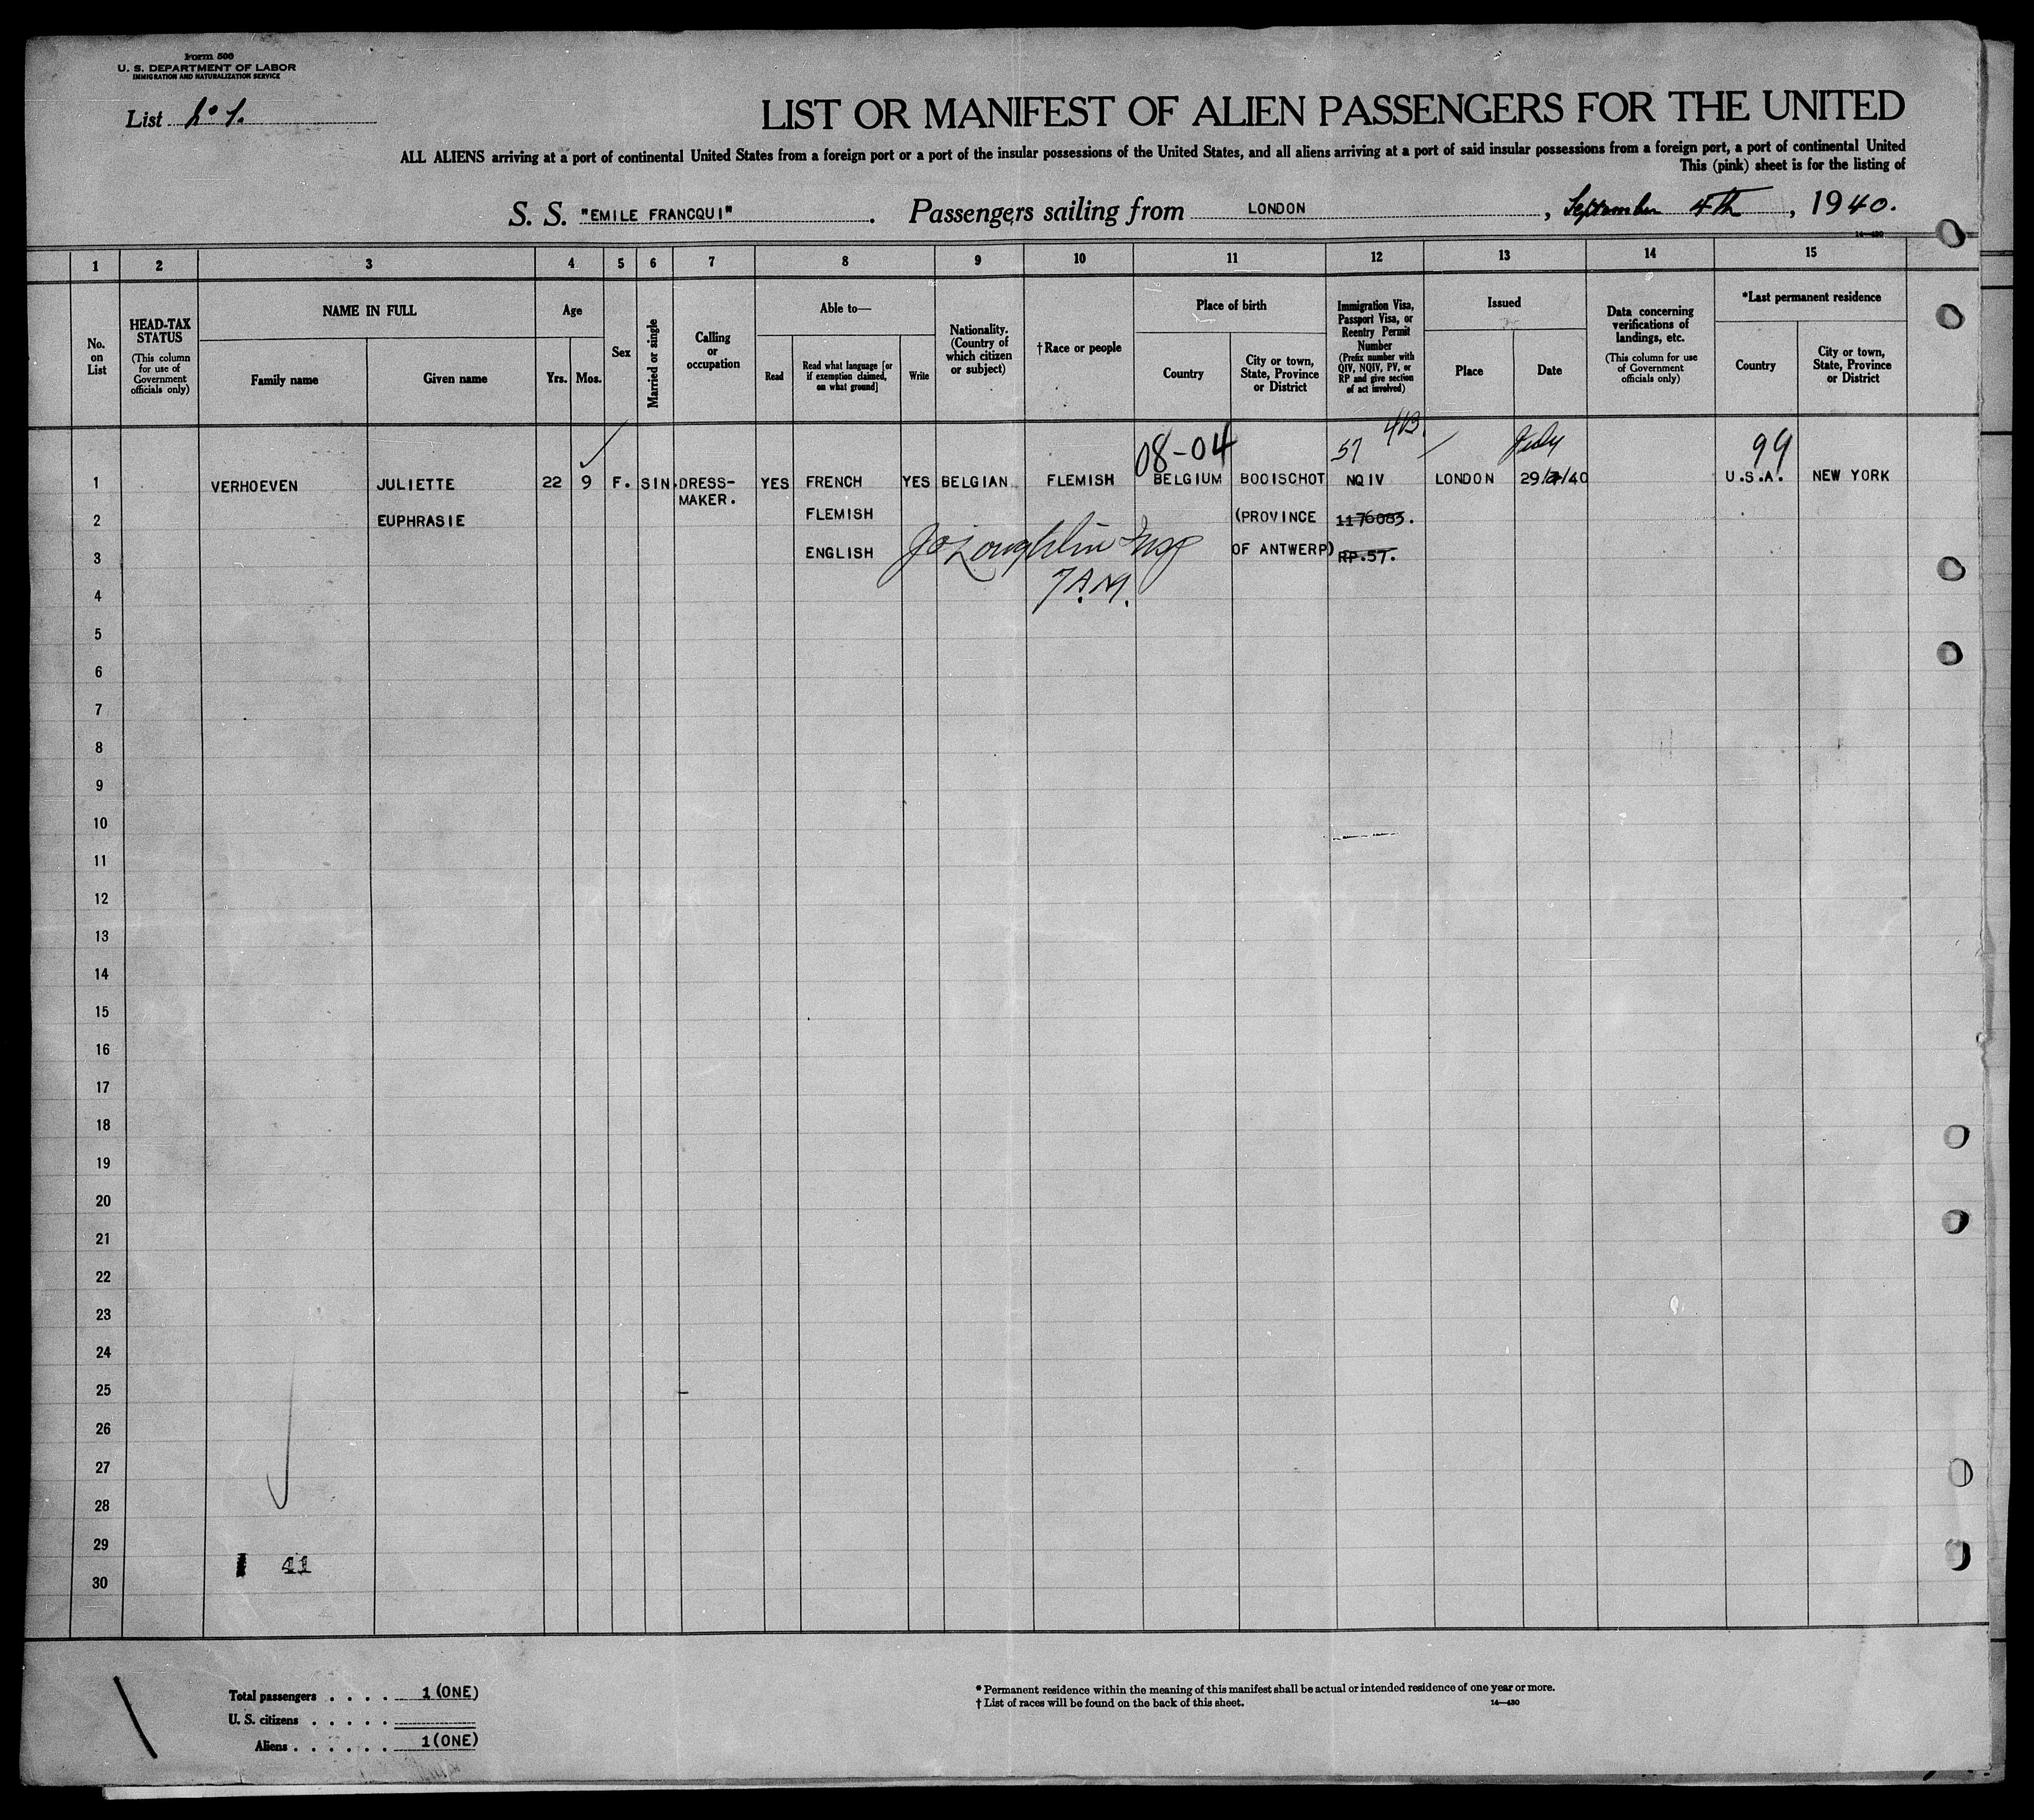 Form 500
U. S. DEPARTMENT OF LABOR
IMMIGRATION AND NATURALIZATION SERVICE
List No 1.
LIST OR MANIFEST OF ALIEN PASSENGERS FOR THE UNITED
ALL ALIENS arriving at a port of continental United States from a foreign port or a port of the insular possessions of the United States, and all aliens arriving at a port of said insular possessions from a foreign port, a port of continental United
This (pink) sheet is for the listing of
S. S. "EMILE FRANCQUI". Passengers sailing from LONDON, September 4th, 1940.
14—430
1 2 3 4 5 6 7 8 9 10 11 12 13 14 15
No. on List
HEAD-TAX STATUS (This column for use of Government officials only)
NAME IN FULL
Family name
Given name
Age
Yrs. Mos.
Sex
Married or single
Calling or occupation
Able to—
Read
Read what language [or if exemption claimed, on what ground]
Write
Nationality. (Country of which citizen or subject)
†Race or people
Place of birth
Country
City or town, State, Province or District
Immigration Visa, Passport Visa, or Reentry Permit Number (Prefix number with QIV, NQIV, PV, or RP and give section of act involved)
Issued
Place
Date
Data concerning verifications of landings, etc. (This column for use of Government officials only)
*Last permanent residence
Country
City or town, State, Province or District
08-04 57 July 99
1 VERHOEVEN JULIETTE 22 9 F. SIN. DRESS- YES FRENCH YES BELGIAN FLEMISH BELGIUM BOOISCHOT NQIV LONDON 29/7/40 U.S.A. NEW YORK
MAKER.
2 EUPHRASIE FLEMISH (PROVINCE 1176083.
3 ENGLISH OF ANTWERP) RP.57.
7 A.M.
4
5
6
7
8
9
10
11
12
13
14
15
16
17
18
19
20
21
22
23
24
25
26
27
28
29
41
30
Total passengers . . . . 1 (ONE)
U. S. citizens . . . . .
Aliens . . . . . . 1 (ONE)
* Permanent residence within the meaning of this manifest shall be actual or intended residence of one year or more.
† List of races will be found on the back of this sheet.
14—430